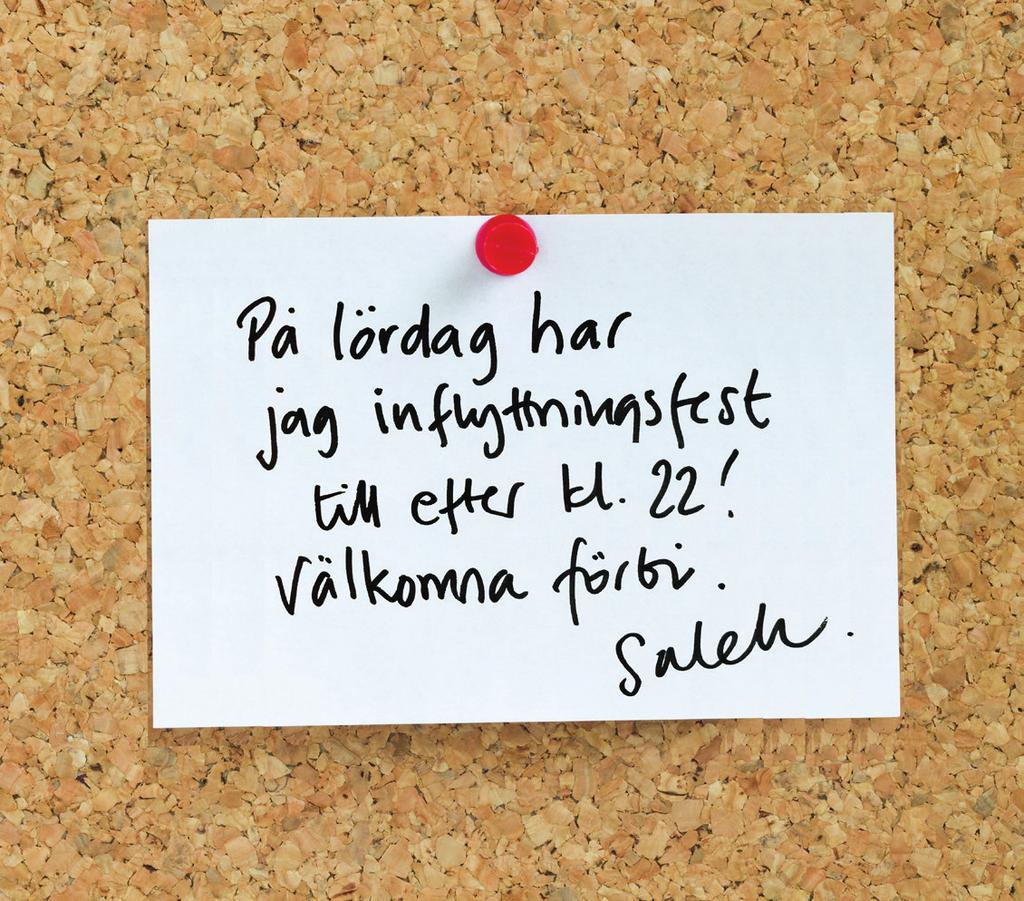 På lördag har
jag inflyttningsfest
till efter kl. 22!
Välkomna förbi.
Saleh.